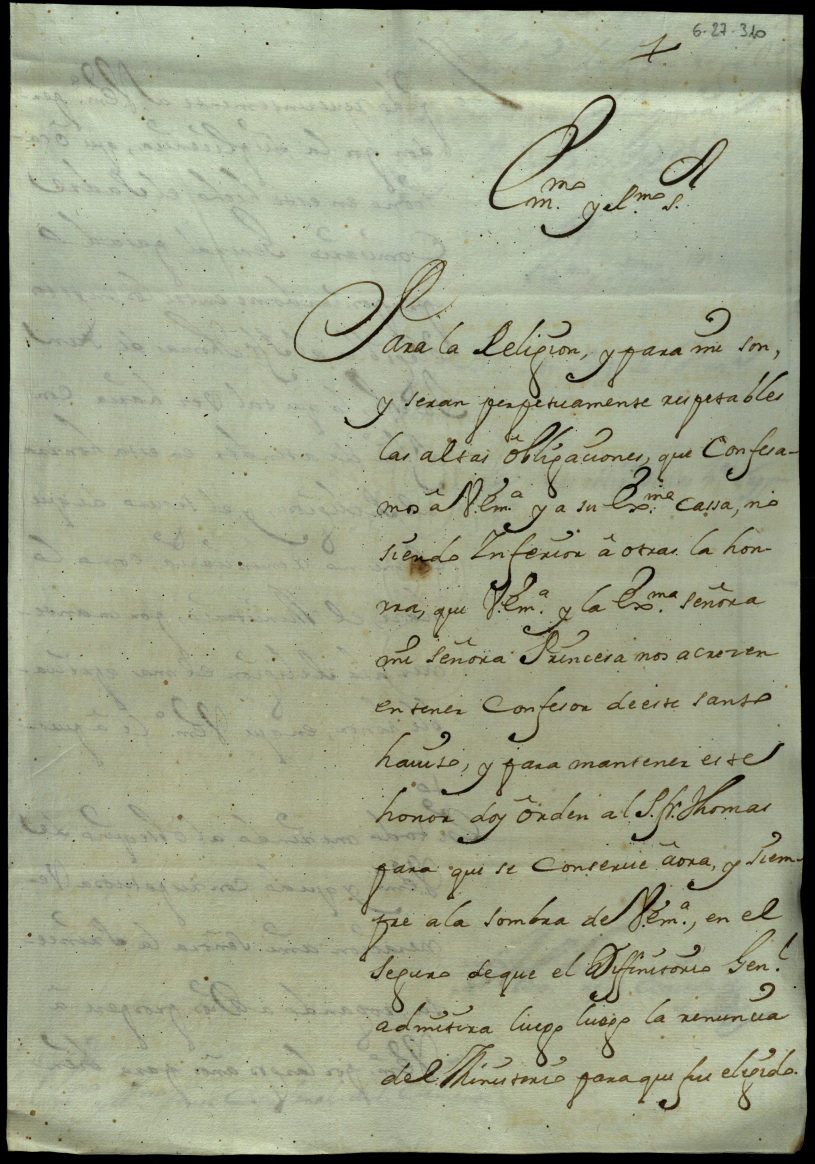 6-27-310
Em.mo y R.mo S.r
Para la Religion, y para mi son,
y seran perpetuamente respetables
las altas obligaciones, que Confesa-
mos â V. Em.ª y a su Ex.ma cassa, no
siendo Inferior â otras la hon-
rra, que V. Em.ª y la Ex.ma señora
mi señora Princesa nos acrezen
en tener Confesor de este santo
havito, y para mantener este
honor doy ôrden al P. fr. Thomas
para que se Conserue âora, y siem-
pre a la sombra de V. Em.ª, en el
seguro de que el Diffinitorio Gen.l
admitira luego luego la renuncia
del Ministerio para que fue eligido.